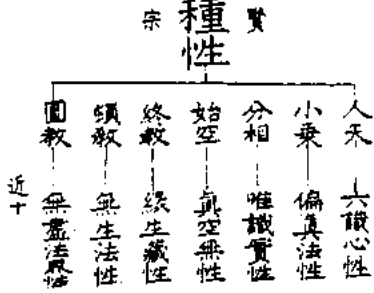 賢
種性
宗
人天 六識心性
小乘 偏真法性
分相 唯識實性
始空 真空無性
終教 緣生藏性
頓教 無生法性
圓教 無盡法界性
近十